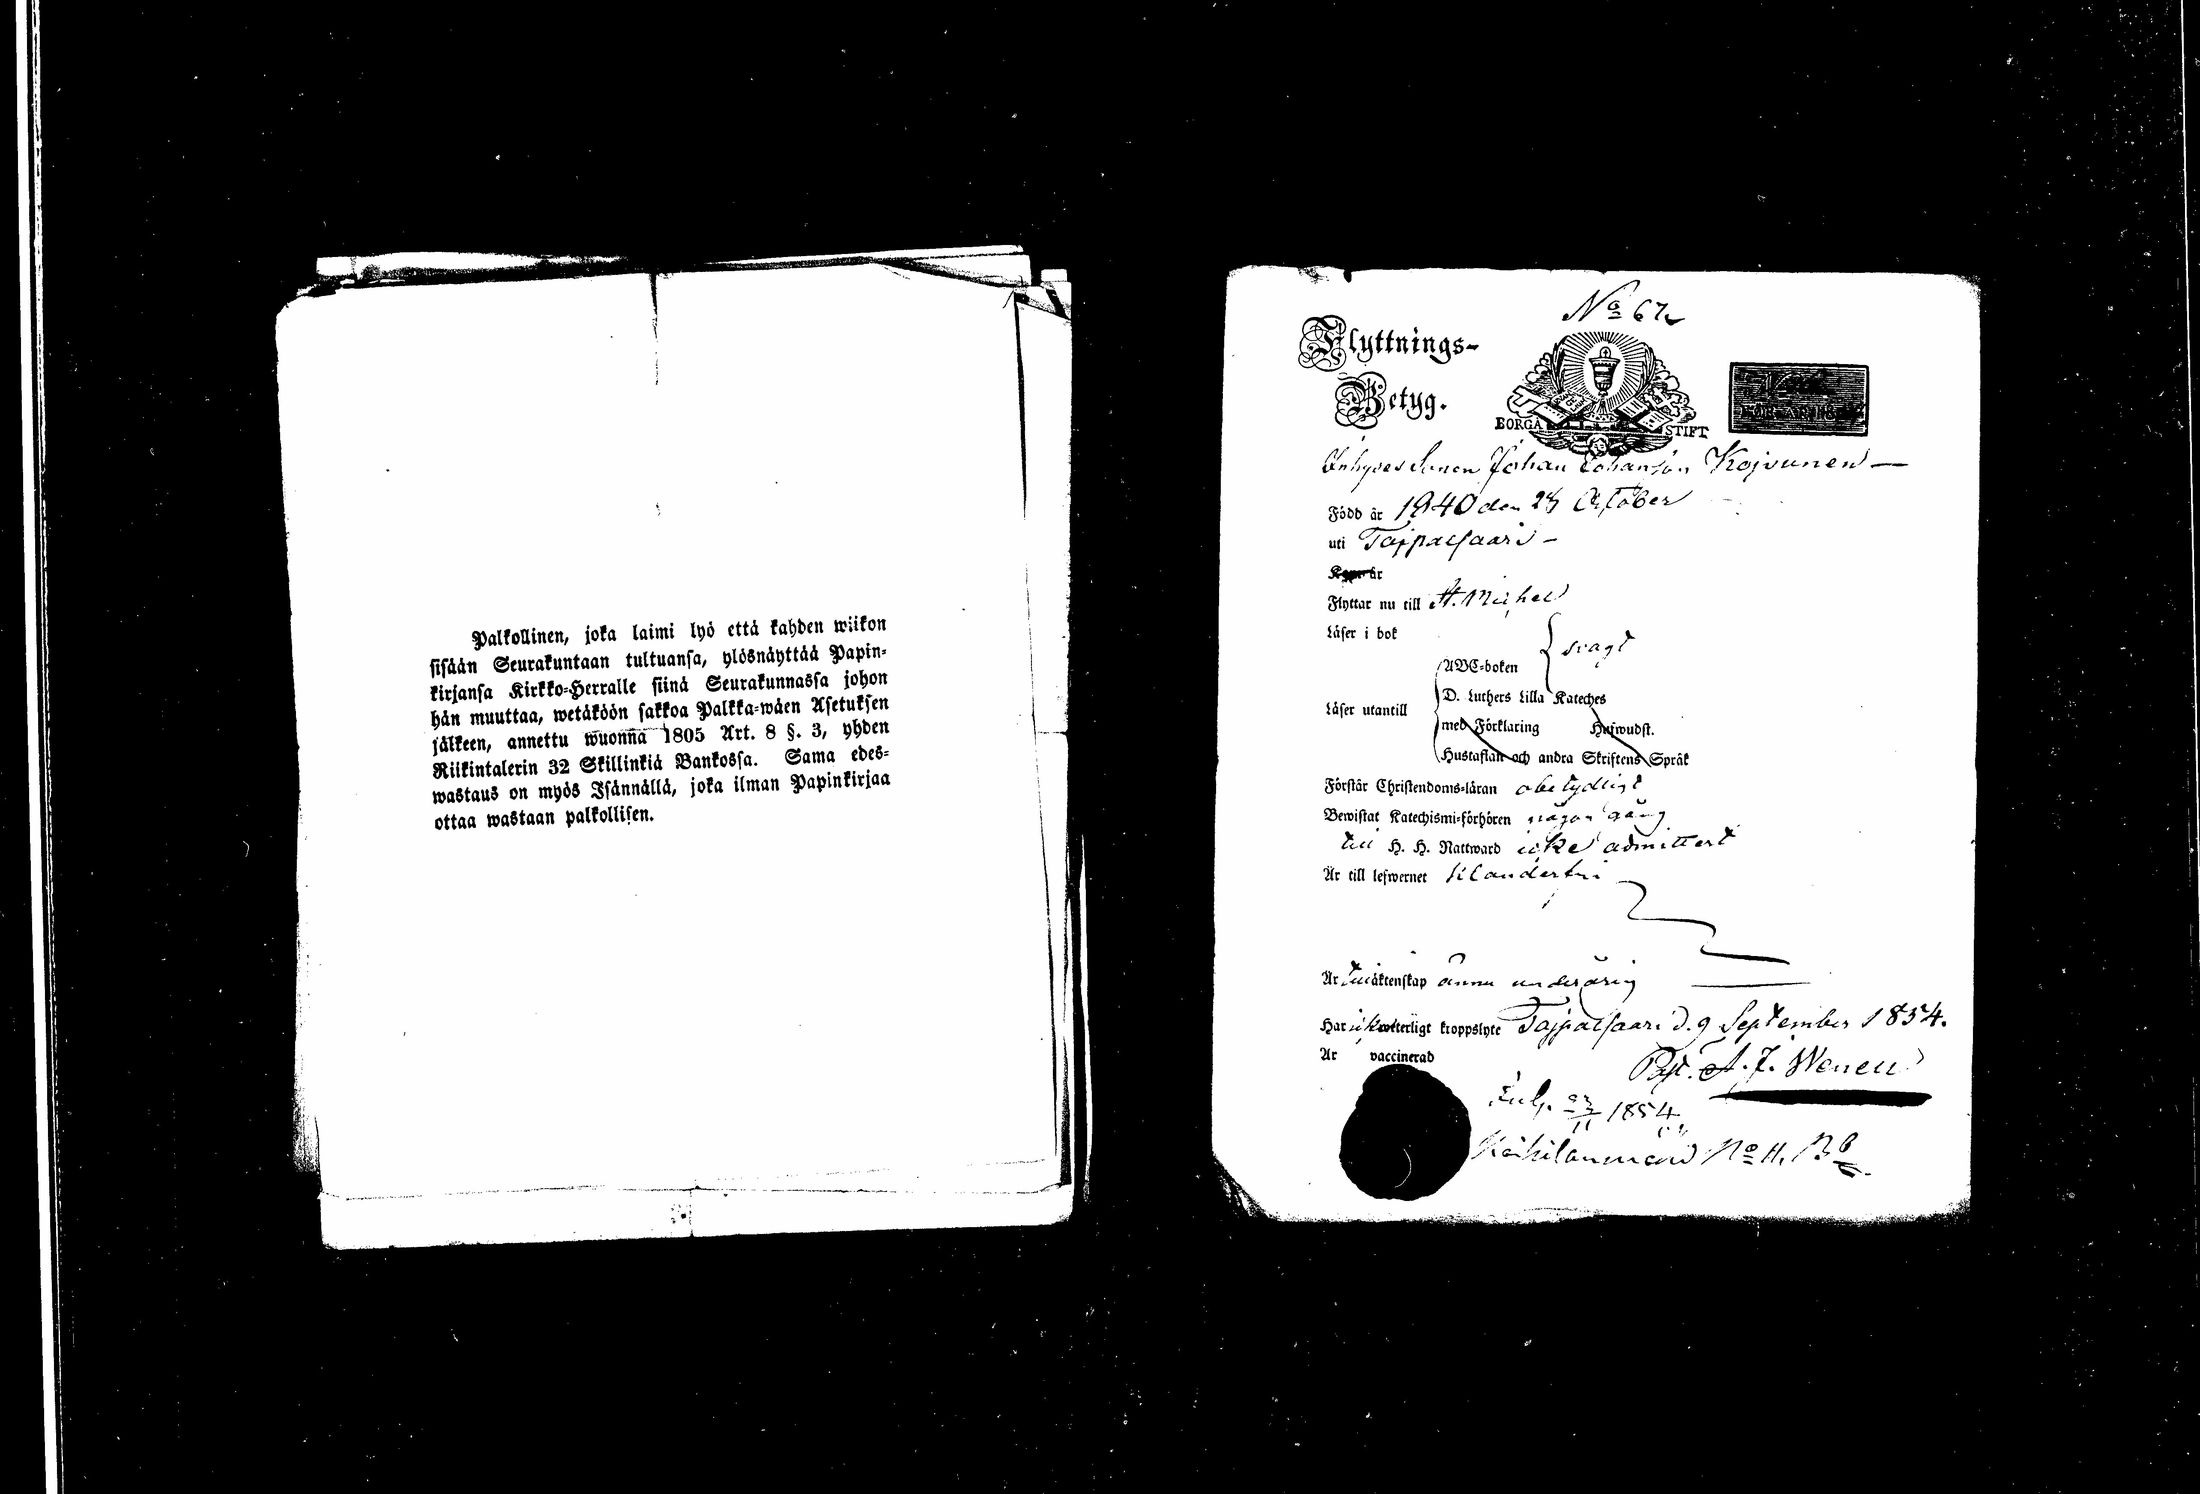 Palkollinen, joka laimi lyö että kahden wiikon
sisään Seurakuntaan tultuansa, ylösnäyttää Papin-
kirjansa Kirkko-Herralle siinä Seurakunnassa johon
hän muuttaa, wetäköön sakkoa Palkka-wäen Asetuksen
jälkeen, annettu wuonna 1805 Art. 8 §. 3, yhden
Riikintalerin 32 Skillinkiä Bankossa. Sama edes-
wastaus on myös Isännällä, joka ilman Papinkirjaa
ottaa wastaan palkollisen.
No 67
Flyttnings-
Betyg.
BORGÅ STIFT
Inhyses Sonen Johan Johansson Kojvunen
Född år 1840 den 28 October
uti Tajpalsaari
år
Flyttar nu till St. Michel
Läser i bok
svagt
ABC-boken
D. Luthers Lilla Kateches
Läser utantill
med Förklaring Hufwudst.
Hustaflan och andra Skriftens Språk
Förstår Christendoms-läran obetydligt
Bewistat Katechismi-förhören någon gång
till H. H. Nattward icke admitterd
Är till lefwernet klanderfri
Är till äktenskap ännu underårig
Har icke wetterligt kroppslyte Tajpalsaari d. 9 September 1854.
Är vaccinerad
A. J. Wenell
1854
No 11.